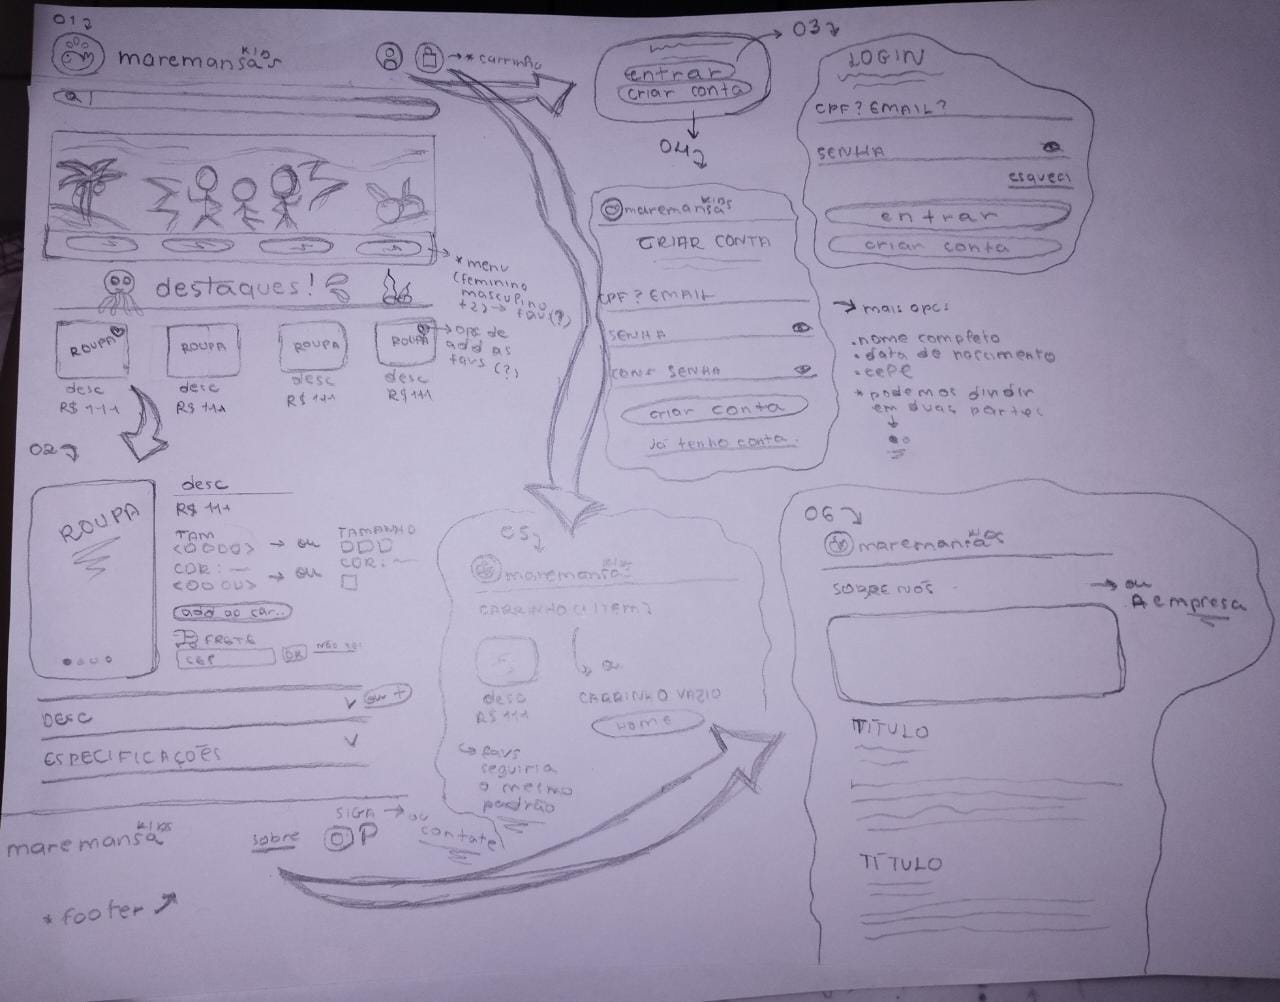 01
maremansa
KIDS
→ * carrinho
* menu
(feminino
destaques!
ROUPA
ROUPA
ROUPA
ROUPA
→ ops de
add as
favs (?)
desc
R$ 111
desc
R$ 111
desc
R$ 111
desc
R$ 111
02
ROUPA
desc
R$ 111
TAM
<0000> → ou
TAMANHO
COR: —
→ ou
COR: —
add ao car..
FRETE
CEP
OK
ou +
DESC
ESPECIFICAÇÕES
maremansa
KIDS
sobre
SIGA → ou
contate
* footer
entrar
criar conta
03
LOGIN
CPF? EMAIL?
SENHA
esqueci
entrar
criar conta
04
maremansa
KIDS
CRIAR CONTA
CPF? EMAIL
SENHA
CONF SENHA
criar conta
Já tenho conta.
→ mais opcs
.nome completo
.data de nascimento
* podemos
em duas partes
05
maremansa
KIDS
CARRINHO
ou
desc
R$ 111
CARRINHO VAZIO
HOME
favs
seguiria
o mesmo
padrão
06
maremansa
SOBRE NÓS
→ ou
A empresa
TÍTULO
TÍTULO